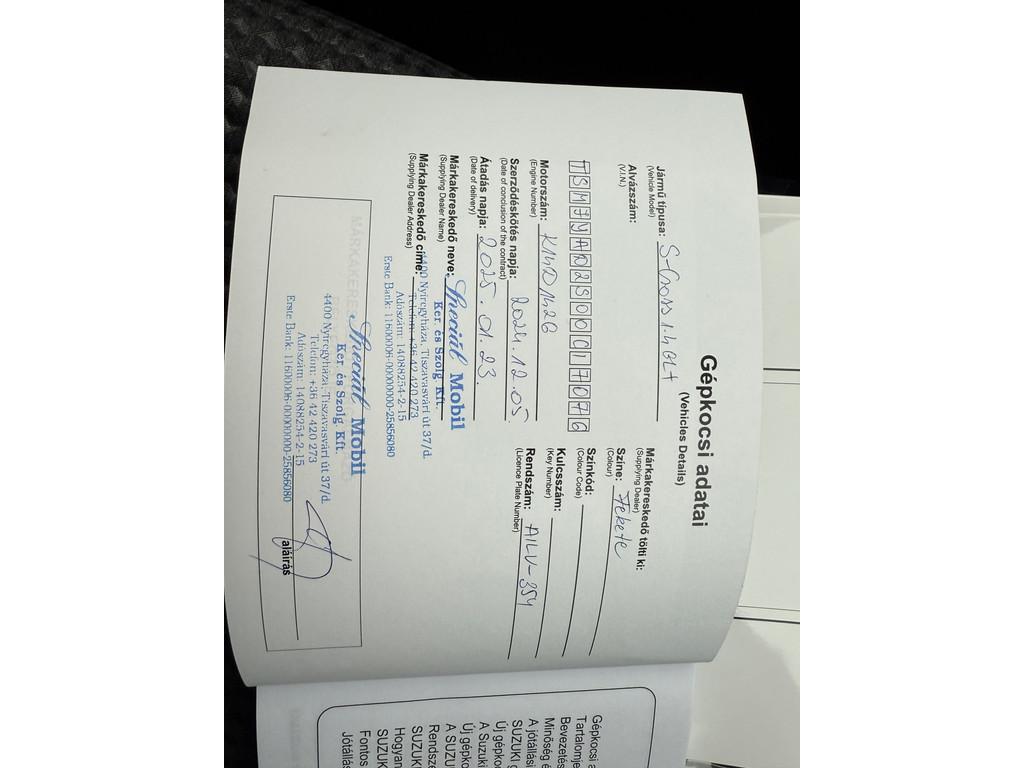 Gépkocsi adatai
(Vehicles Details)
Jármű típusa: S-Cross 1.4 GL+
(Vehicle Model)
Alvázszám:
(V.I.N.)
TSMJYAD2S00C17076
Motorszám: K14D1426
(Engine Number)
Szerződéskötés napja: 2024.12.05.
(Date of conclusion of the contract)
Átadás napja: 2025.01.23.
(Date of delivery)
Márkakereskedő neve:
(Supplying Dealer Name)
Márkakereskedő címe:
(Supplying Dealer Address)
Speciál Mobil
Ker. és Szolg. Kft.
4400 Nyíregyháza, Tiszavasvári út 37/d.
Telefon: +36 42 420 273
Adószám: 14088254-2-15
Erste Bank: 11600006-00000000-25856080
Márkakereskedő tölti ki:
(Supplying Dealer)
Színe: Fekete
(Colour)
Színkód:
(Colour Code)
Kulcsszám:
(Key Number)
Rendszám: AILV-354
(Licence Plate Number)
Speciál Mobil
Ker. és Szolg. Kft.
4400 Nyíregyháza, Tiszavasvári út 37/d.
Telefon: +36 42 420 273
Adószám: 14088254-2-15
Erste Bank: 11600006-00000000-25856080
aláírás
Gépkocsi a
Tartalomje
Bevezetés
Minőség é
A jótállási
SUZUKI g
Új gépko
A Suzuki
Új gépko
A SUZU
Rendsze
SUZUKI
Hogyan
SUZUK
Fontos
Jótállás